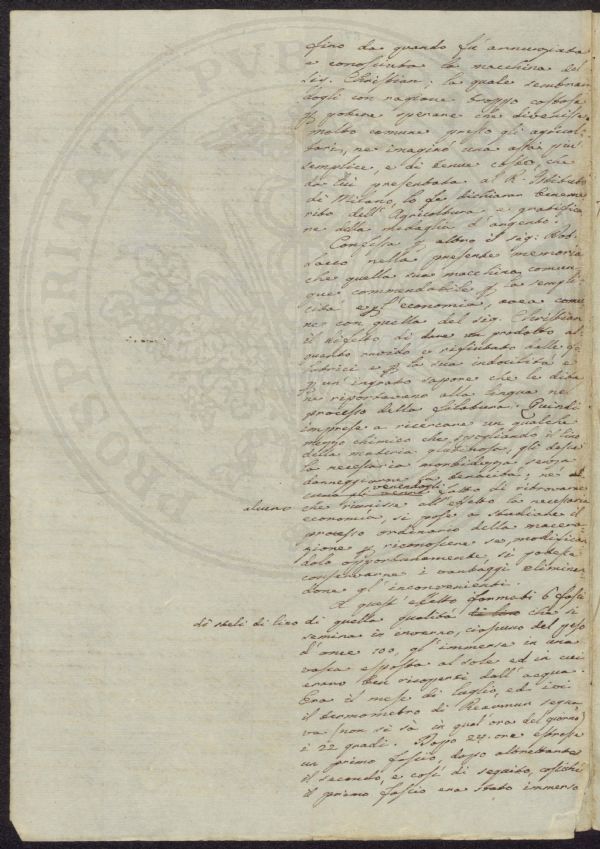 fino da quando fu annunziata
e conosciuta la macchina del
Sig. Christian; la quale sembran
dogli con ragione troppo costosa
p. potere sperare che divenisse
molto comune presso gli agricol
tori, ne imaginò una assai più
semplice, e di tenue costo, che
da lui presentata al R. Istituto
di Milano, lo fe dichiarar beneme
rito dell'Agricoltura e gratifica
re della medaglia d'argento.
Confessa p. altro il sig.
nella presente memoria
che quella sua macchina comun
que commendabile p. la sempli
cità e p. l'economia, avea comu
ne con quella del sig. Christian
il difetto di dare un prodotto al
quanto ruvido e rifiutato dalle fi
latrici e p. la sua indocilità e
p. un'ingrato sapore che le dita
ne riportavano alla lingua nel
processo della filatura. Quindi
imprese a ricercare un qualche
mezzo chimico che, spogliando il lino
della materia glutinosa, gli dasse
la necessaria morbidezza senza
danneggiarne la tenacità; nè
venendogli fatto di ritrovarne
alcuno che riunisse all'effetto la necessaria
economia, si pose a studiare il
processo ordinario della macera
zione p. riconoscere se, modifican
dolo opportunamente, si potesse
conservarne i vantaggi eliminan
done gl'inconvenienti.
A quest'effetto formati 6 fasci
di steli di lino di quella qualità che si
semina in inverno, ciascuno del peso
d'once 100, gl'immerse in una
vasca esposta al sole ed in cui
erano ben ricoperti dall'acqua.
Era il mese di luglio, ed ivi
il termometro di Reaumur segna
va (non si sà in qual'ora del giorno)
i 22 gradi. Dopo 24 ore estrasse
un primo fascio, dopo altrettante
il secondo, e così di seguito, cosichè
il primo fascio era stato immerso